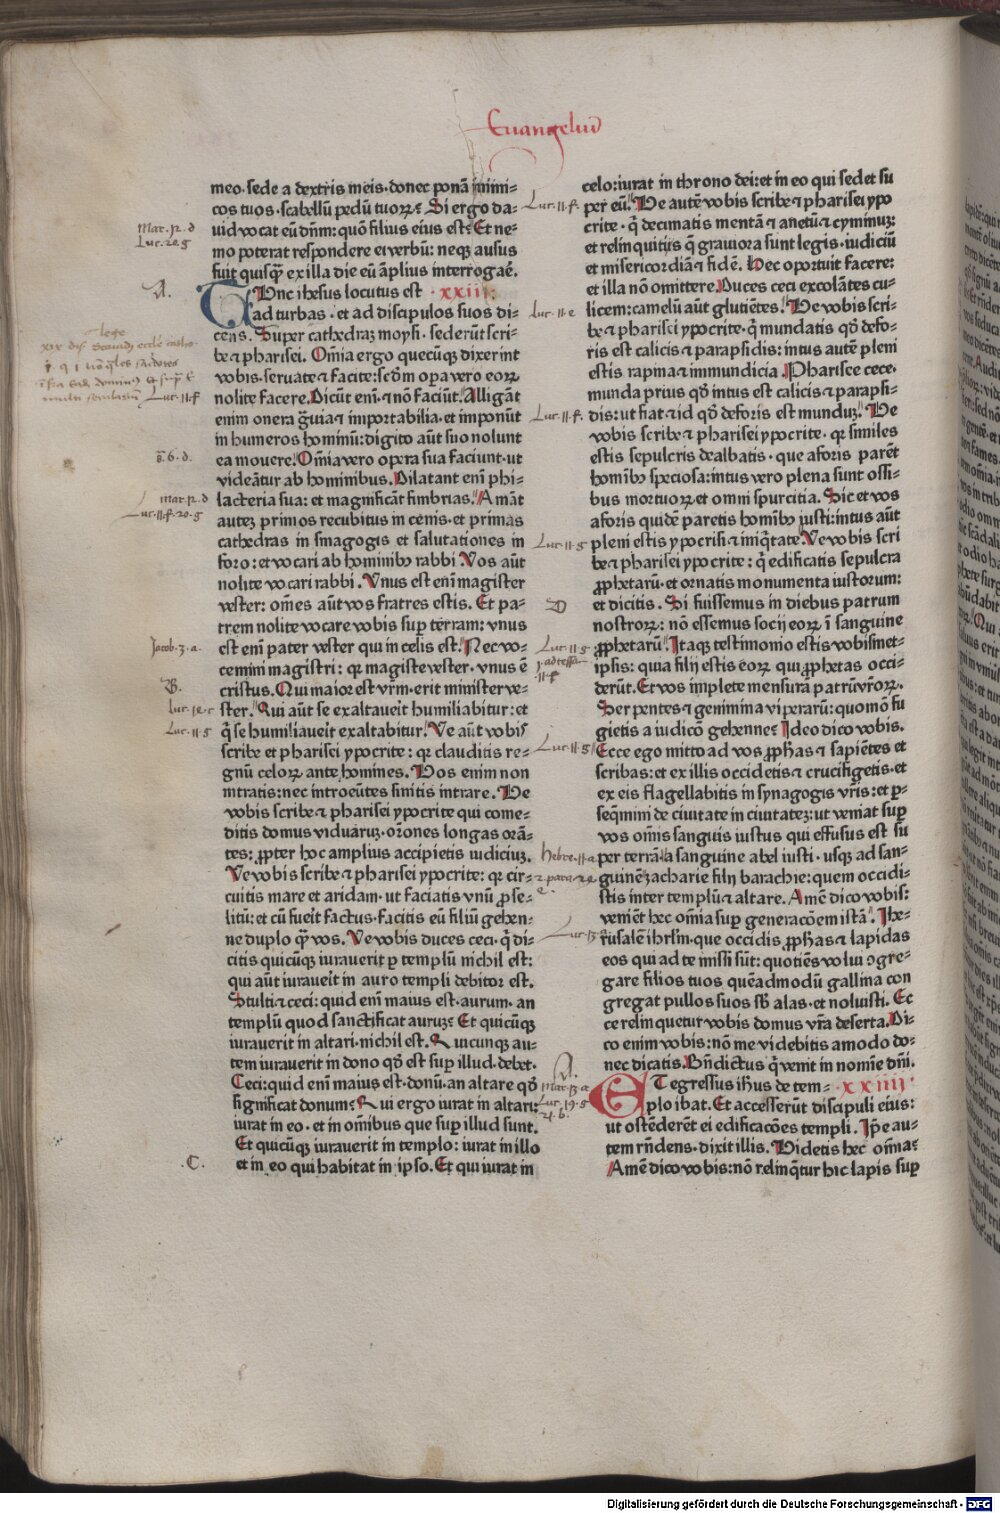 Euangeliū
meo·sede a dextris meis·donec ponā inimi=
cos tuos·scabellū pedū tuoꝝ? Si ergo da=
uid vocat eū dn̄m: quō filius eius est? Et ne=
mo poterat respondere ei verbū: neqꝫ ausus
fuit quisqȝ ex illa die eū āplius interrogaē.
TUnc ihesus locutus est ·xxiii·
ad turbas·et ad discipulos suos di=
cens. Super cathedraꝫ moysi·sederūt scri=
be ⁊ pharisei. Om̄ia ergo quecūqꝫ dixerint
vobis·seruate ⁊ facite: scd̄m opa vero eoꝝ
nolite facere. Dicūt em̄: ⁊ nō faciūt. Alligāt
enim onera grauia ⁊ importabilia·et imponūt
in humeros hominū: digito aūt suo nolunt
ea mouere. Om̄ia vero opera sua faciunt·ut
videātur ab hominibus. Dilatant em̄ phi=
lacteria sua: et magnificāt fimbrias. Amāt
auteꝫ primos recubitus in cenis·et primas
cathedras in sinagogis et salutationes in
foro: et vocari ab hominibꝰ rabbi. Vos aūt
nolite vocari rabbi. Vnus est em̄ magister
vester: om̄es aūt vos fratres estis. Et pa=
trem nolite vocare vobis sup terram: vnus
est em̄ pater vester qui in celis est. Nec vo=
cemini magistri: qꝛ magister vester·vnus ē
cristus. Qui maior est vr̄m·erit minister ve=
ster. Qui aūt se exaltaueit humiliabitur: et
q̄ se humiliaueit exaltabitur. Ve aūt vobis
scribe et pharisei ypocrite: qꝛ clauditis re=
gnū celoꝝ ante homines. Vos enim non
intratis: nec introeūtes sinitis intrare. Ve
vobis scribe ⁊ pharisei ypocrite qui come=
ditis domus viduaruꝫ·or̄ones longas orā=
tes: ꝓpter hoc amplius accipietis iudiciuꝫ.
Ve vobis scribe ⁊ pharisei ypocrite: qꝛ cir=
cuitis mare et aridam·ut faciatis vnū ꝓse=
litū: et cū fueit factus·facitis eū filiū gehen=
ne duplo qȝ vos. Ve vobis duces ceci·q̄ di=
citis quicūqꝫ iurauerit ꝑ templū nichil est:
qui aūt iuraueit in auro templi debitor est.
Stulti ⁊ ceci: quid em̄ maius est·aurum·an
templū quod sanctificat auruꝫ? Et quicūqꝫ
iurauerit in altari·nichil est. Quicunqꝫ au=
tem iurauerit in dono qd̄ est sup illud·debet.
Ceci: quid em̄ maius est·donū·an altare qd̄
significat donum? Qui ergo iurat in altari:
iurat in eo·et in om̄ibus que sup illud sunt.
Et quicūqꝫ iurauerit in templo: iurat in illo
et in eo qui habitat in ipso. Et qui iurat in
celo: iurat in throno dei: et in eo qui sedet su
per eū. Ve autē vobis scribe ⁊ pharisei ypo
crite·q̄ decimatis mentā ⁊ anetū ⁊ cyminuꝫ:
et relinquitis q̄ grauiora sunt legis·iudiciū
et misericordiā ⁊ fidē. Hec oportuit facere:
et illa nō omittere. Duces ceci excolātes cu=
licem: camelū aūt glutiētes. Ve vobis scri=
be ⁊ pharisei ypocrite·q̄ mundatis qd̄ defo=
ris est calicis ⁊ parapsidis: intus autē pleni
estis rapina ⁊ immundicia. Pharisee cece·
munda prius qd̄ intus est calicis ⁊ parapsi=
dis: ut fiat ⁊ id qd̄ deforis est munduꝫ. Ve
vobis scribe ⁊ pharisei ypocrite·qꝛ similes
estis sepulcris dealbatis·que aforis parēt
hominibꝰ speciosa: intus vero plena sunt ossi=
bus mortuoꝝ et omni spurcitia. Sic et vos
aforis quidē paretis hominibꝰ iusti: intus aūt
pleni estis ypocrisi ⁊ iniq̄tate. Ve vobis scri
be ⁊ pharisei ypocrite: q̄ edificatis sepulcra
ꝓphetarū·et ornatis monumenta iustorum:
et dicitis. Si fuissemus in diebus patrum
nostroꝝ: nō essemus socij eoꝝ ī sanguine
ꝓphetarū. Itaqꝫ testimonio estis vobismet=
ipsis: quia filij estis eoꝝ qui ꝓphetas occi=
derūt. Et vos implete mensurā patrū vr̄oꝝ.
Serpentes ⁊ genimina viperarū: quomō fu
gietis a iudicō gehenne? Ideo dico vobis.
Ecce ego mitto ad vos ꝓphas ⁊ sapiētes et
scribas: et ex illis occidetis ⁊ crucifigetis·et
ex eis flagellabitis in synagogis vr̄is: et ꝑ=
seq̄mini de ciuitate in ciuitateꝫ: ut veniat sup
vos om̄is sanguis iustus qui effusus est su
per terrā a sanguine abel iusti·usqꝫ ad san=
guinē zacharie filij barachie: quem occidi=
stis inter templū ⁊ altare. Amē dico vobis:
veniēt hec om̄ia sup generacōem istā. Ihe=
rusalē ihrl̄m·que occidis ꝓphas ⁊ lapidas
eos qui ad te missi sūt: quotiēs volui ↄgre=
gare filios tuos quēadmodū gallina con
gregat pullos suos sb̄ alas·et noluisti. Ec
ce relinquetur vobis domus vr̄a deserta. Di=
co enim vobis: nō me videbitis amodo do=
nec dicatis. Bn̄dictus q̄ venit in nomīe dn̄i.
ET egressus ih̄us de tem= ·xxiiii·
plo ibat. Et accesserūt discipuli eius:
ut ostēderēt ei edificacōes templi. Ip̄e au=
tem rn̄dens·dixit illis. Videtis hec om̄ia?
Amē dico vobis: nō relinq̄tur hic lapis sup
Mar·12·d
Luc·20·g
A.
Luc·11·f
g̅·6·d.
mar·12·d
Luc·11·f·20·g
Jacob·3·a·
B.
Luc·14·c
Luc·11·g
C.
Luc·11·f·
Luc·11·e
Luc·11·f·
Luc·11·g
D
Luc·11·g
Luc·11·g
Hebre·11·a
Luc·13·
A.
Mar·13·a
Luc·19·g
21·b·
Digitalisierung gefördert durch die Deutsche Forschungsgemeinschaft - DFG